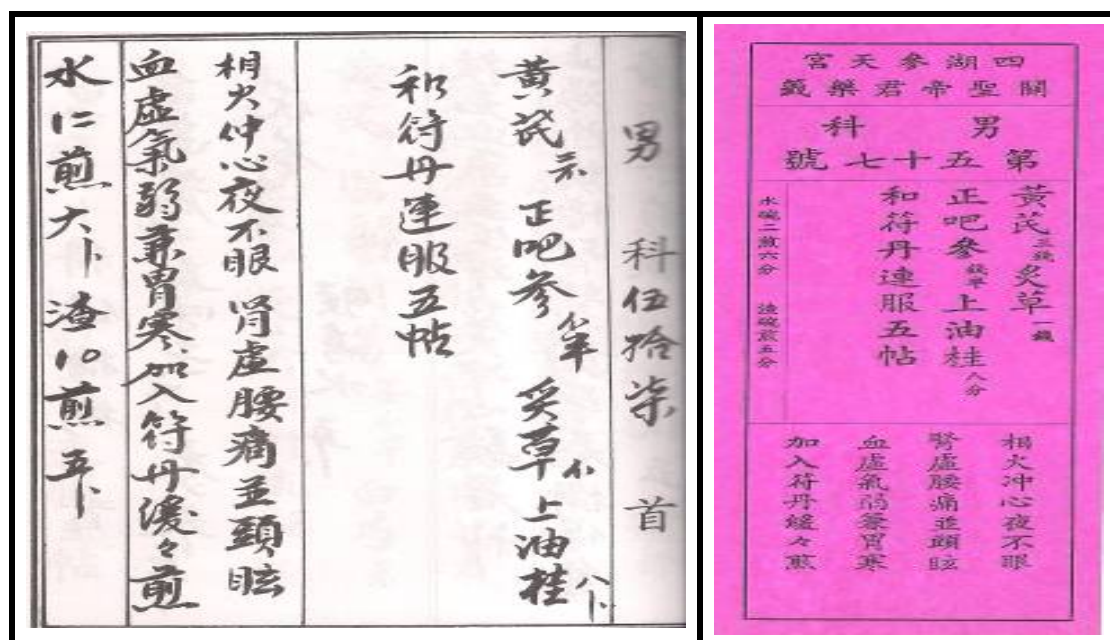 男 科 伍拾柒 首
黃芪 正吧參 炙草 上油桂
和符丹連服五帖
相火仲心夜不眠 肾虛腰痛並頭眩
血虛氣弱兼胃寒加入符丹緩々煎
水 煎六 渣 煎五
四湖參天宮
關聖帝君藥籤
男科
第五十七號
黃芪三錢炙草一錢
正吧參錢半上油桂八分
和符丹連服五帖
水碗二煎六分 渣碗煎五分
相火冲心夜不眠
腎虛腰痛並頭眩
血虛氣弱兼胃寒
加入符丹緩々煎